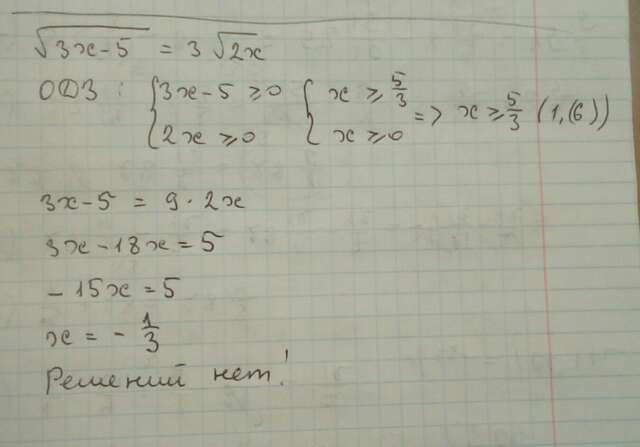 √(3x-5) = 3√(2x)
ОДЗ: { 3x-5 ≥ 0 { x ≥ 5/3 => x ≥ 5/3 (1,(6))
2x ≥ 0 x ≥ 0
3x-5 = 9·2x
3x-18x = 5
-15x = 5
x = -1/3
Решений нет!